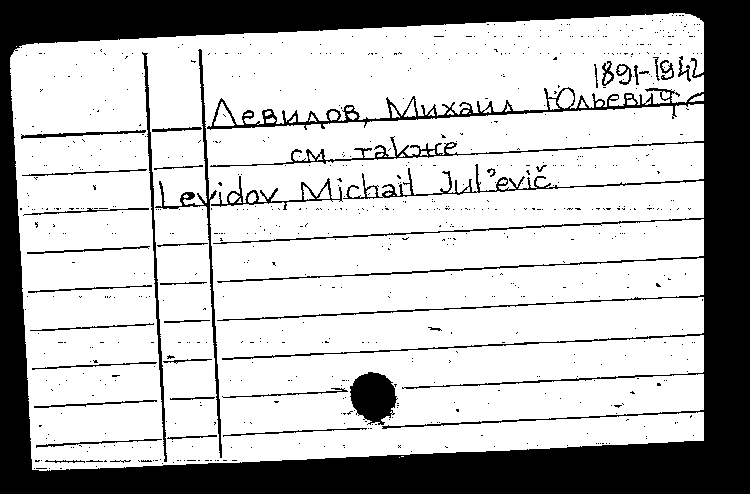 1891-1942
Левидов, Михаил Юльевич
см. также
Levidov, Michail Jul'evič.